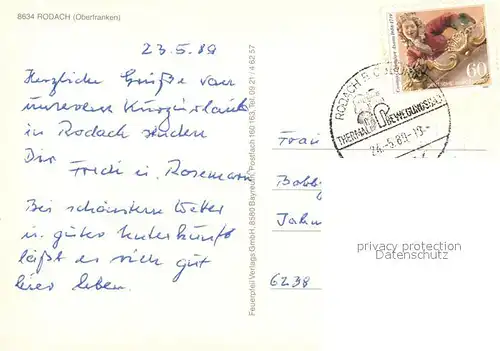 8634 RODACH (Oberfranken)
23.5.89
Herzliche Grüße von
unserem Kurzurlaub
in Rodach senden
Dir Fredi u. Rosemarie
Bei schönstem Wetter
u. guter Unterkunft
läßt es sich gut
hier leben.
Feuerpfeil Verlags GmbH, 8580 Bayreuth, Postfach 160 163, Tel. 09 21 / 4 62 57
60
RODACH B. COBURG
THERMAL BEWEGUNGSBAD
24.-5.89.-19.-
Frau
Bobb
Jahn
6238
privacy protection
Datenschutz